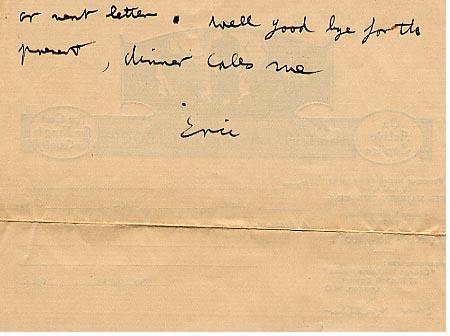 or next letter. Well good bye for the
present, dinner calls me
Eric